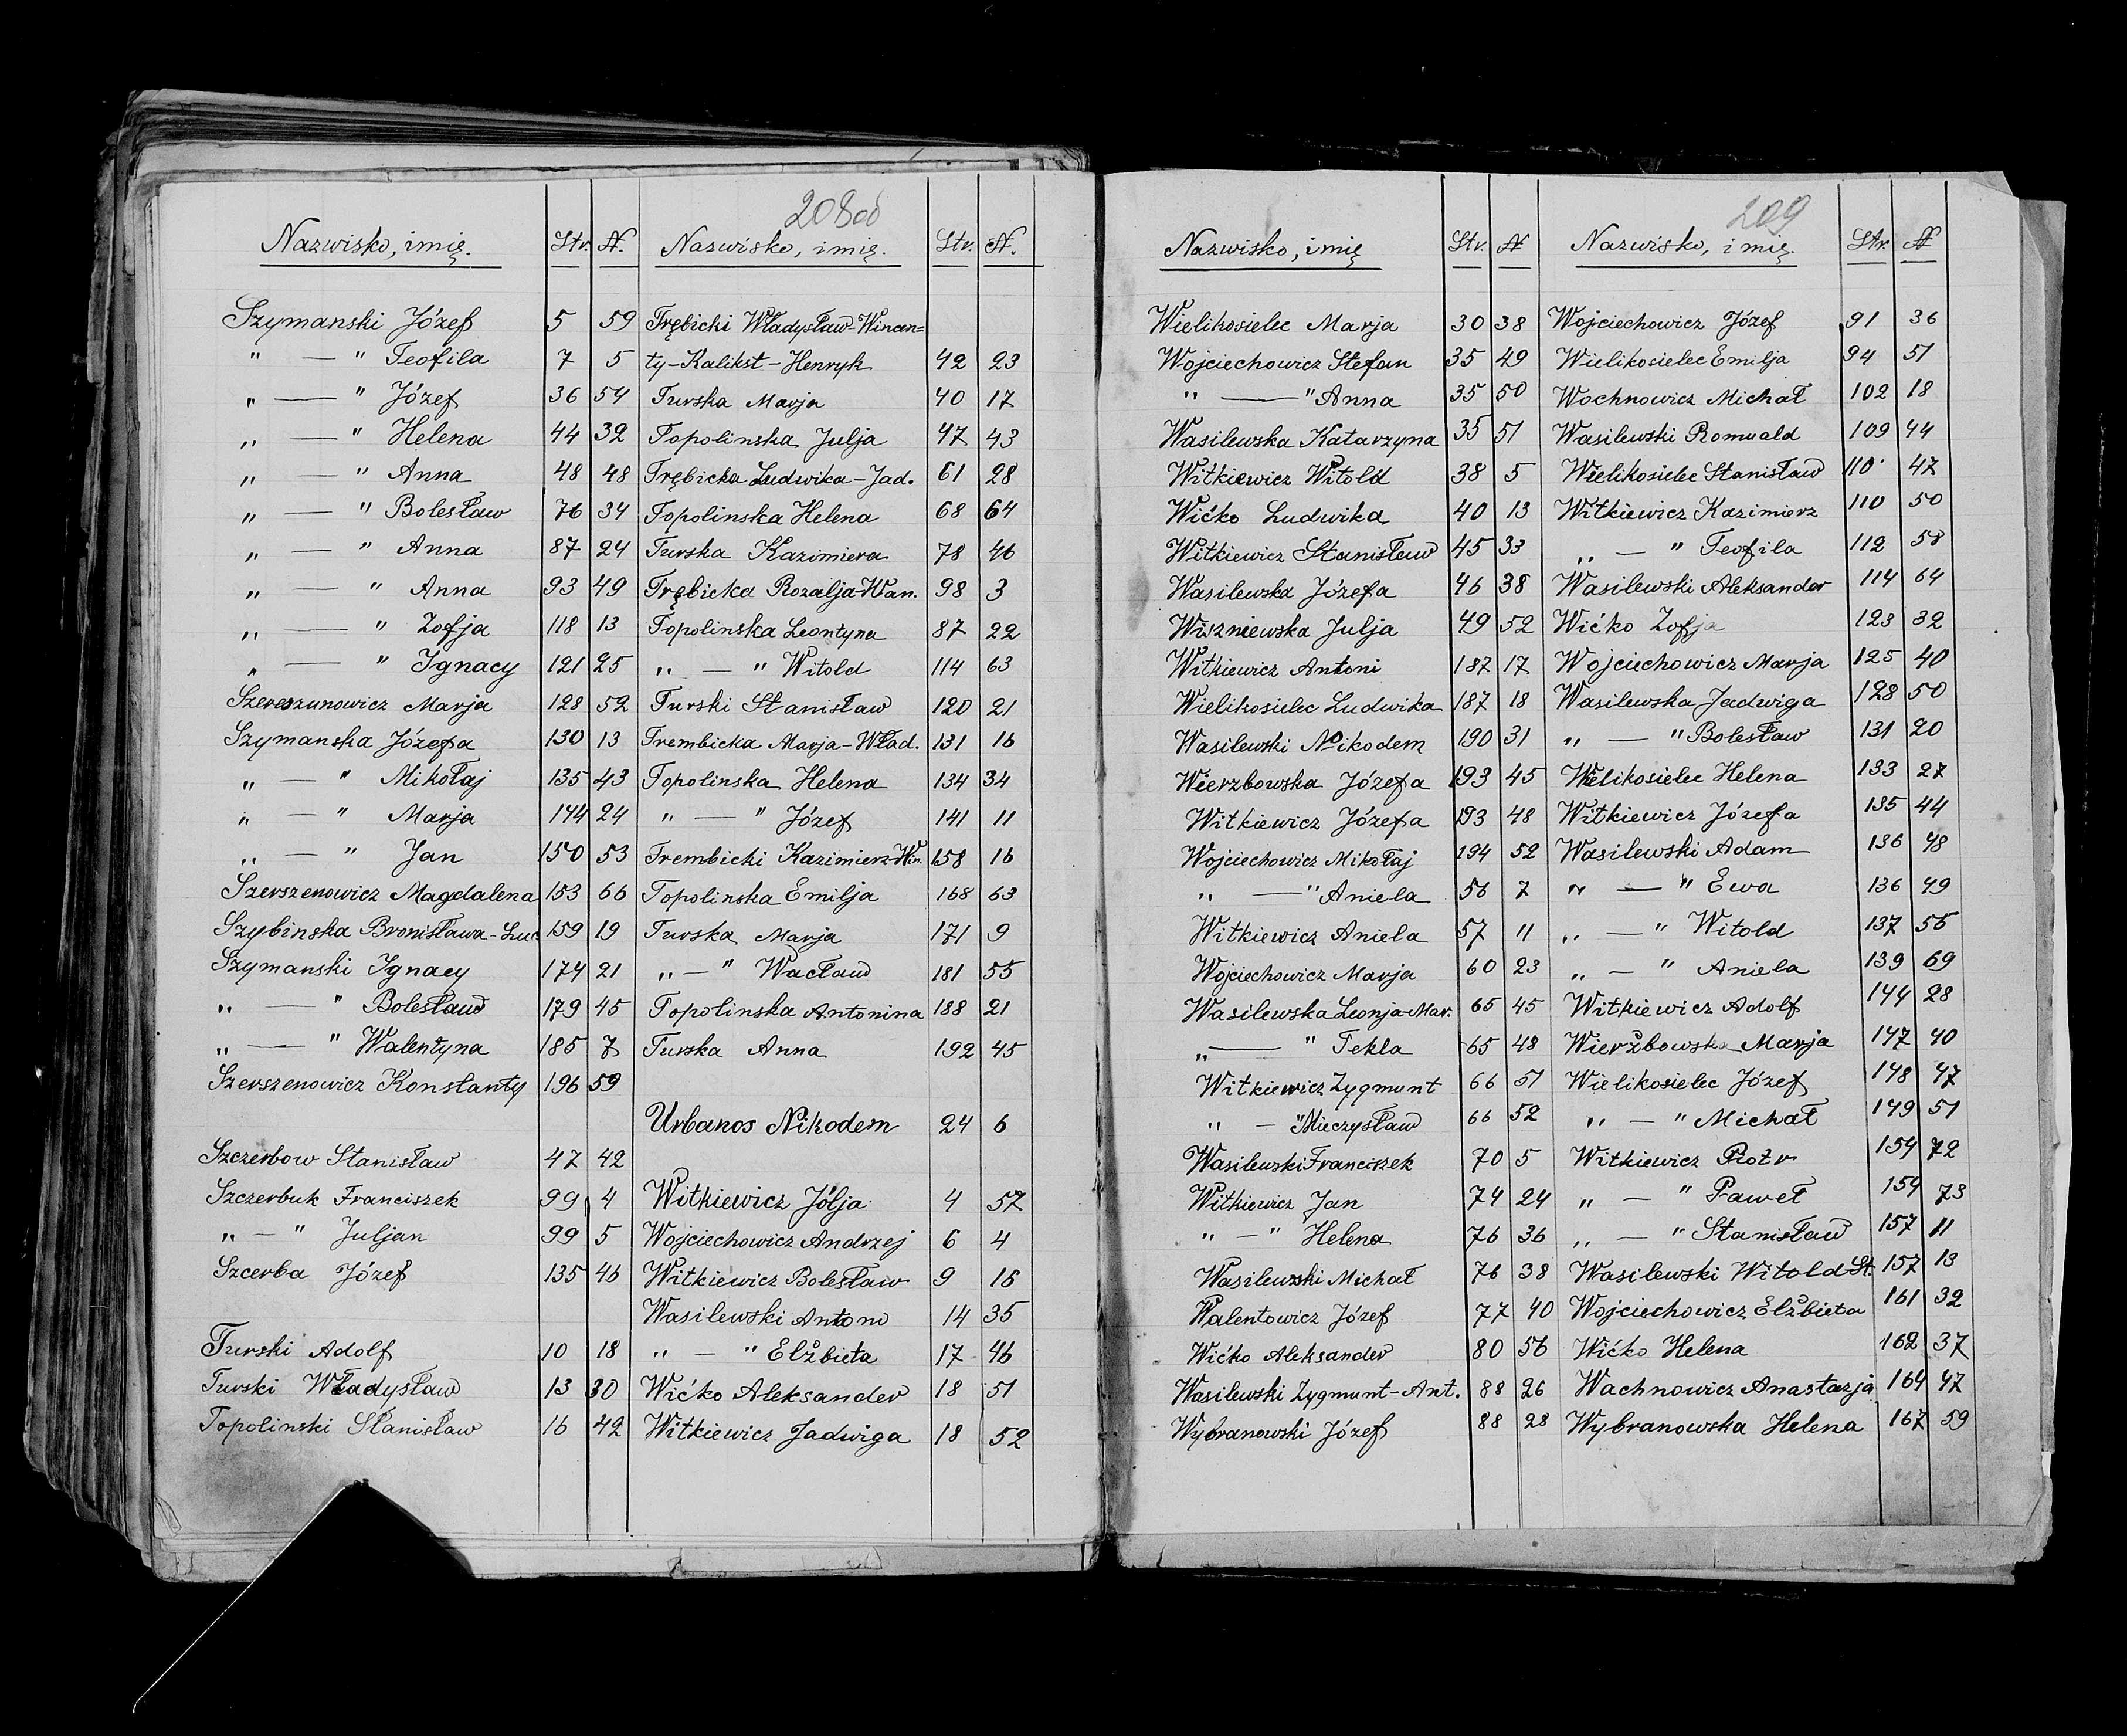 208об
Nazwisko, imię. Str. N.
Szymanski Józef 5 59
" — " Teofila 7 5
" — " Józef 36 54
" — " Helena 44 32
" — " Anna 48 48
" — " Bolesław 76 34
" — " Anna 87 24
" — " Anna 93 49
" — " Zofja 118 13
" — " Ignacy 121 25
Szereszunowicz Marja 128 52
Szymanska Józefa 130 13
" — " Mikołaj 135 43
" — " Marja 144 24
" — " Jan 150 53
Szerszenowicz Magdalena 153 66
Szybinska Bronisława-Luc. 159 19
Szymanski Ignacy 174 21
" — " Bolesław 179 45
" — " Walentyna 185 7
Szerszenowicz Konstanty 196 59
Szczerbow Stanisław 47 42
Szczerbuk Franciszek 99 4
" — " Juljan 99 5
Szcerba Józef 135 46
Turski Adolf 10 18
Turski Władysław 13 30
Topolinski Stanisław 16 42
Nazwisko, imię. Str. N.
Trębicki Władysław-Wincen=
ty-Kalikst-Henryk 42 23
Turska Marja 40 17
Topolinska Julja 47 43
Trębicka Ludwika-Jad. 61 28
Topolinska Helena 68 64
Turska Kazimiera 78 46
Trębicka Rozalja-Wan. 98 3
Topolinska Leontyna 87 22
" — " Witold 114 63
Turski Stanisław 120 21
Trembicka Marja-Wład. 131 16
Topolinska Helena 134 34
" — " Józef 141 11
Trembicki Kazimierz-Win. 158 16
Topolinska Emilja 168 63
Turska Marja 171 9
" — " Wacław 181 55
Topolinska Antonina 188 21
Turska Anna 192 45
Urbanos Nikodem 24 6
Witkiewicz Jólja 4 57
Wojciechowicz Andrzej 6 4
Witkiewicz Bolesław 9 16
Wasilewski Antoni 14 35
" — " Elżbieta 17 46
Wićko Aleksander 18 51
Witkiewicz Jadwiga 18 52
209
Nazwisko, imię Str. N
Wielikosielec Marja 30 38
Wojciechowicz Stefan 35 49
" — " Anna 35 50
Wasilewska Katarzyna 35 51
Witkiewicz Witold 38 5
Wićko Ludwika 40 13
Witkiewicz Stanisław 45 33
Wasilewska Józefa 46 38
Wiszniewska Julja 49 52
Witkiewicz Antoni 187 17
Wielikosielec Ludwika 187 18
Wasilewski Nikodem 190 31
Wierzbowska Józefa 193 45
Witkiewicz Józefa 193 48
Wojciechowicz Mikołaj 194 52
" — " Aniela 56 7
Witkiewicz Aniela 57 11
Wojciechowicz Marja 60 23
Wasilewska Leonja-Mar. 65 45
" — " Tekla 65 48
Witkiewicz Zygmunt 66 51
" — " Mieczysław 66 52
Wasilewski Franciszek 70 5
Witkiewicz Jan 74 24
" — " Helena 76 36
Wasilewski Michał 76 38
Walentowicz Józef 77 40
Wićko Aleksander 80 56
Wasilewski Zygmunt-Ant. 88 26
Wybranowski Józef 88 28
Nazwisko, imię. Str. N
Wojciechowicz Józef 91 36
Wielikosielec Emilja 94 51
Wochnowicz Michał 102 18
Wasilewski Romuald 109 44
Wielikosielec Stanisław 110 47
Witkiewicz Kazimierz 110 50
" — " Teofila 112 58
Wasilewski Aleksander 114 64
Wićko Zofja 123 32
Wojciechowicz Marja 125 40
Wasilewska Jadwiga 128 50
" — " Bolesław 131 20
Wielikosielec Helena 133 27
Witkiewicz Józefa 135 44
Wasilewski Adam 136 48
" — " Ewa 136 49
" — " Witold 137 56
" — " Aniela 139 69
Witkiewicz Adolf 144 28
Wierżbowska Marja 147 40
Wielikosielec Józef 148 47
" — " Michał 149 51
Witkiewicz Piotr 154 72
" — " Paweł 154 73
" — " Stanisław 157 11
Wasilewski Witold St. 157 13
Wojciechowicz Elżbieta 161 32
Wićko Helena 162 37
Wachnowicz Anastazja 164 47
Wybranowska Helena 167 59